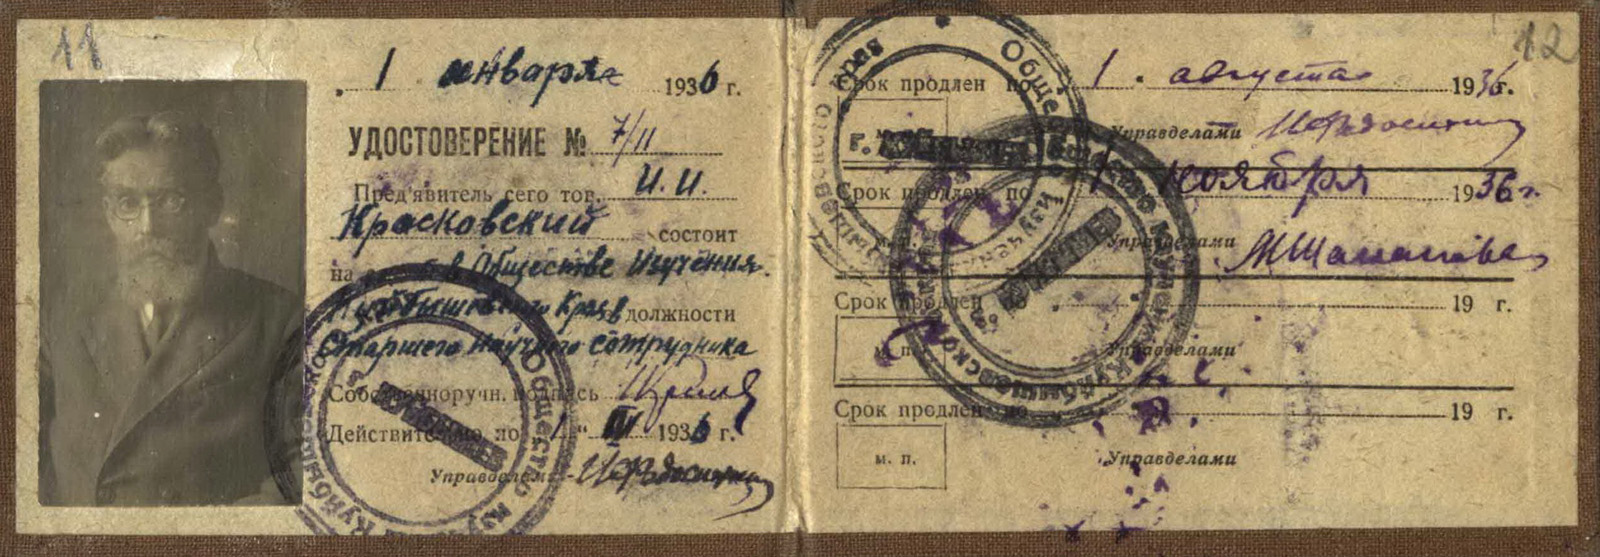 11
1 января 1936 г.
УДОСТОВЕРЕНИЕ № 7/11
Пред'явитель сего тов. И. И.
Красковский состоит
на в Обществе Изучения
Куйбышевского Края в должности
Старшего Научного сотрудника
Собственноручн. подпись
Действительно по 1 " III 1936 г.
Управделами
Общество изучения Куйбышевского
12
Срок продлен по 1. августа 1936 г.
м. п. Управделами
Срок продлен по 1 ноября 1936 г.
м. п. Управделами
Срок продлен по 19 г.
м. п. Управделами
Срок продлен по 19 г.
м. п. Управделами